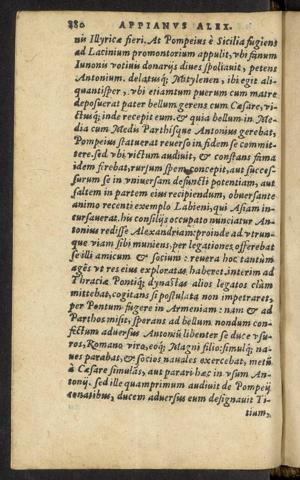 380 APPIANVS ALEX.
nü Illyricæ fieri. At Pompeius è Sicilia fugiens
ad Lacinium promontorium appulit, vbi fanum
Iunonis votiuis donarijs diues spoliauit, petens
Antonium. delatusq́; Mitylenen, ibi egit ali-
quantisper, vbi etiamtum puerum cum matre
deposuerat pater bellum gerens cum Cæsare, vi-
ctusq́; inde recepit eum. & quia bellum in Me-
dia cum Medis Parthisque Antonius gerebat,
Pompeius statuerat reuerso in fidem se commit-
tere. sed vbi victum audiuit, & constans fama
idem firebat, rursum spem concepit, aut succes-
surum se in vniuersam defuncti potentiam, aut
saltem in partem eius recipiendum, obuersante
animo recenti exemplo Labieni, qui Asiam in-
cursauerat. his consilijs occupato nunciatur An-
tonius redisse Alexandriam: proinde ad vtrun-
que viam sibi muniens, per legationes offerebat
se illi amicum & socium: reuera hoc tantùm
agēs vt res eius exploratas haberet. interim ad
Thraciæ Pontiq́; dynastas alios legatos clàm
mittebat, cogitans si postulata non impetraret,
per Pontum fugere in Armeniam: nam & ad
Parthos misit, sperans ad bellum nondum con-
fectum aduersus Antoniū libenter se duce vsu-
ros, Romano viro, eoq́; Magni filio: simulq́; na-
ues parabat, & socios nauales exercebat, metū
à Cæsare simulās, aut parari hæc in vsum An-
tonij. sed ille quamprimum audiuit de Pompeij
conatibus, ducem aduersus eum designauit Ti-
tium,